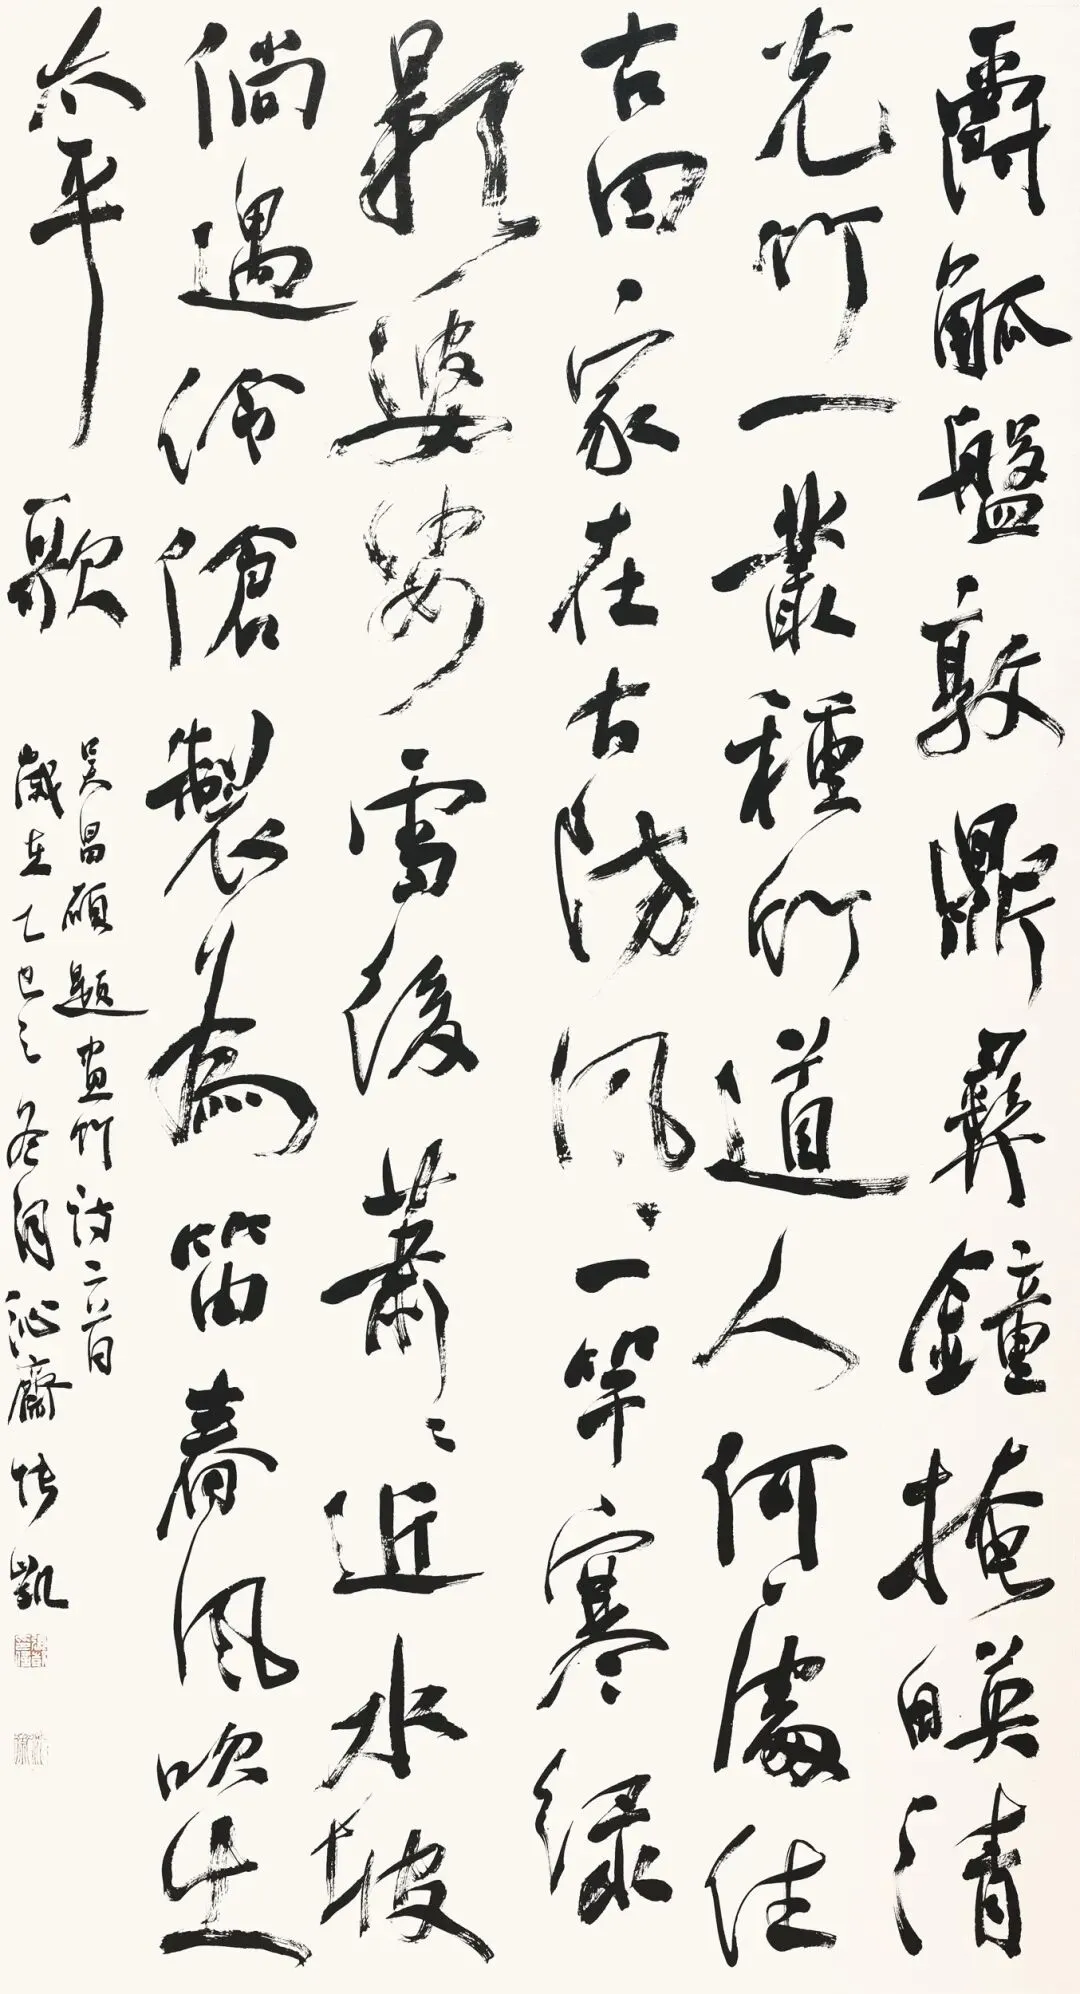 爵觚盤敦鼎彝鐘掩暎清
光竹一叢種竹道人何處住
古田家在古防風一竿寒綠
影婆娑雪後蕭〻近水坡
倘遇伶傖製為笛春風吹出
太平歌
吳昌碩題畫竹詩二首
歲在乙巳之冬月沁齋凱